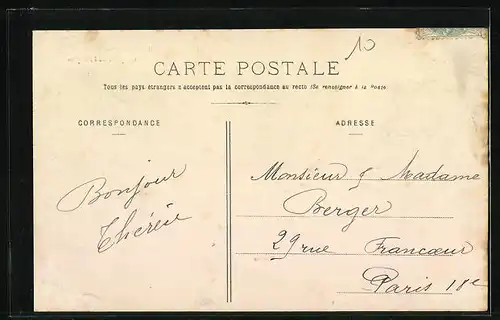 10
CARTE POSTALE
Tous les pays étrangers n'acceptent pas la correspondance au recto (Se renseigner à la Poste
CORRESPONDANCE
ADRESSE
Bonjour
Thérèse
Monsieur & Madame
Berger
29 rue Francœur
Paris 18e